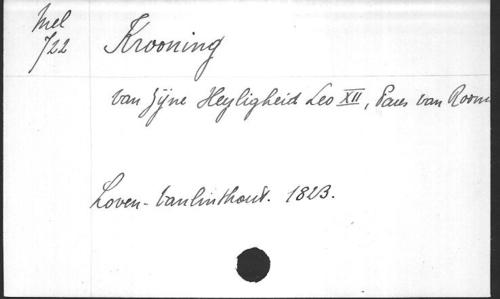 Mel
722
Krooning
van Zijne Heyligheid Leo XII, Paus van Roome
Loven - Vanlinthout. 1823.